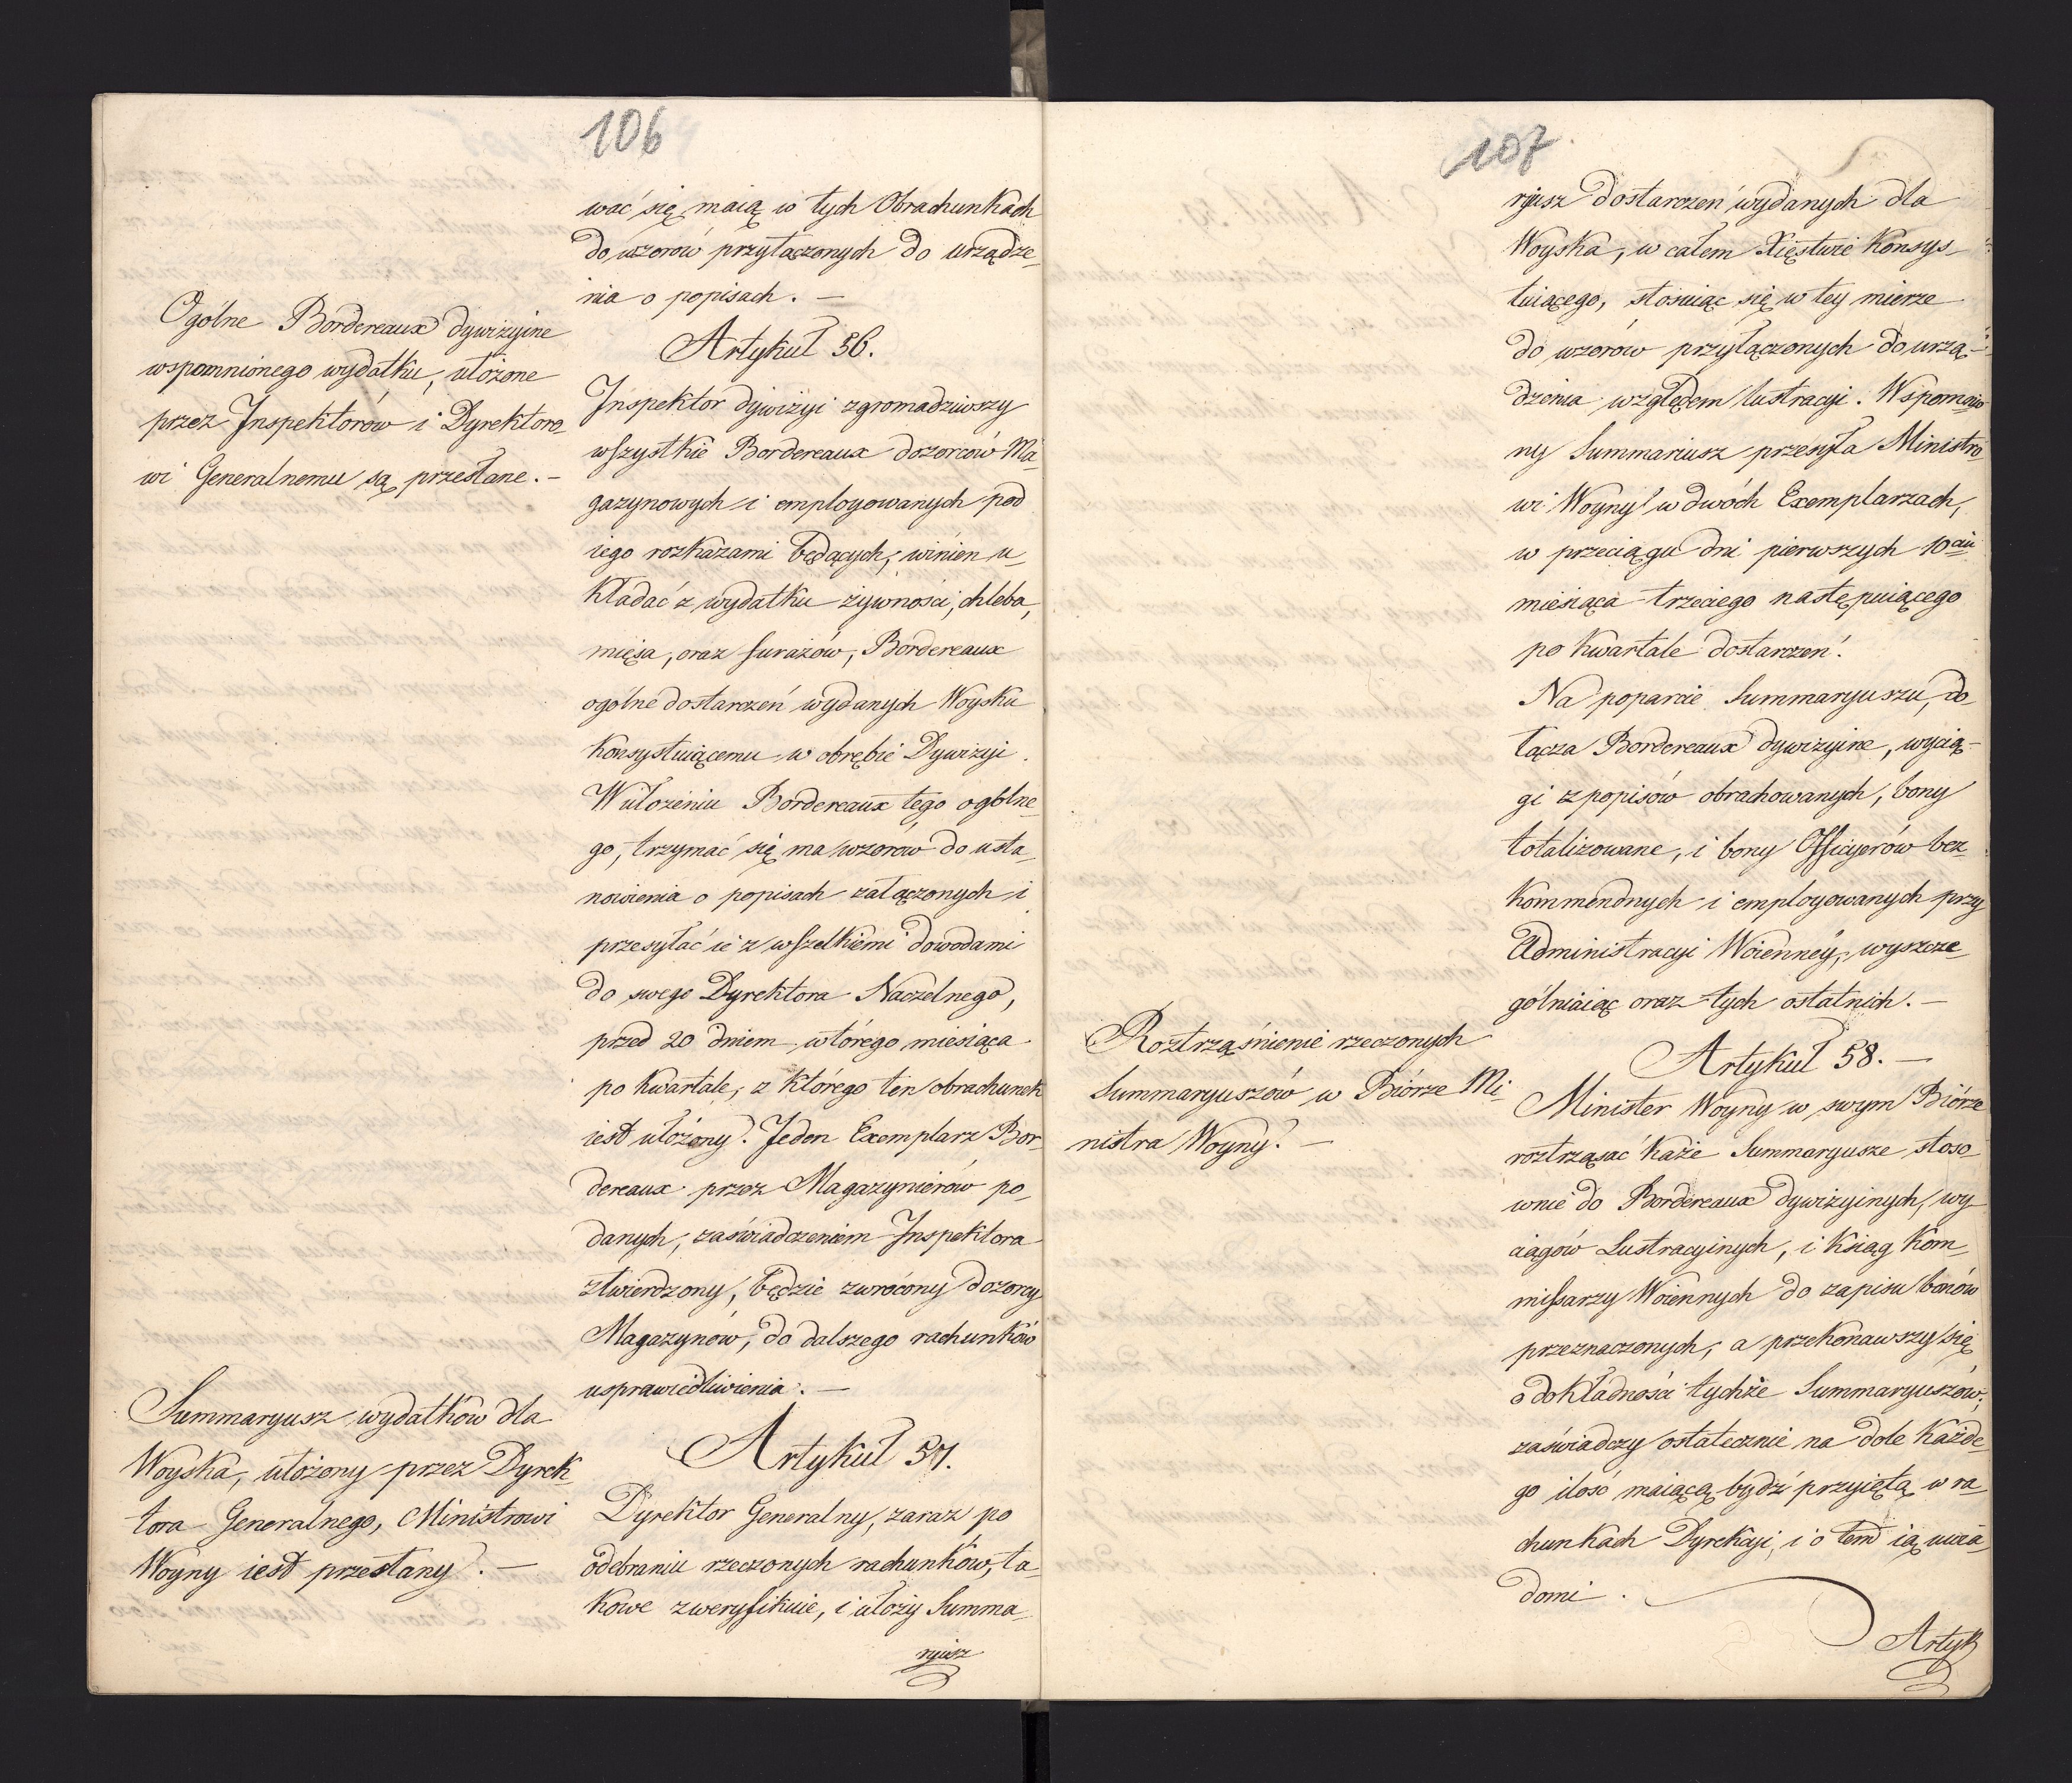 106
wać się maią w tych Obrachunkach
do wzorów przyłączonych do urządze-
nia o popisach. —
Ogólne Bordereaux dywizyine
wspomnionego wydatku, ułożone
przez Inspektorów i Dyrektoro-
wi Generalnemu są przesłane. —
Artykuł 56.
Inspektor dywizyi zgromadziwszy
wszystkie Bordereaux dozorców Ma-
gazynowych i employowanych pod
iego rozkazami będących, winien u-
kładać z wydatku żywności, chleba,
mięsa, oraz furażów, Bordereaux
ogólne dostarczeń wydanych Woysku
konsystuiącemu w obrębie Dywizyi.
W ułożeniu Bordereaux tego ogólne-
go, trzymać się ma wzorów do usta-
nowienia o popisach załączonych i
przesyłać ie z wszelkiemi dowodami
do swego Dyrektora Naczelnego,
przed 20 dniem wtórego miesiąca
po kwartale, z którego ten obrachunek
iest ułożony. Jeden Exemplarz Bor-
dereaux przez Magazynierów po-
danych, zaświadczeniem Inspektora
ztwierdzony, będzie zwrócony dozorcy
Magazynów, do dalszego rachunków
usprawiedliwienia. —
Summaryusz wydatków dla
Woyska, ułożony przez Dyrek-
tora Generalnego, Ministrowi
Woyny iest przesłany. —
Artykuł 57.
Dyrektor Generalny, zaraz po
odebraniu rzeczonych rachunków, ta-
kowe zweryfikuie, i ułoży Summa-
ryusz
107
ryusz dostarczeń wydanych dla
Woyska, w całem Xięstwie konsys-
tuiącego, stosuiąc się w tey mierze
do wzorów przyłączonych do urzą-
dzenia względem lustracyi. Wspomnio-
ny Summariusz przesyła Ministro-
wi Woyny w dwóch Exemplarzach,
w przeciągu dni pierwszych 10ciu
miesiąca trzeciego następuiącego
po kwartale dostarczeń.
Na poparcie Summaryuszu, do-
łącza Bordereaux dywizyine, wycią-
gi z popisów obrachowanych, bony
totalizowane, i bony Officyerów bez-
kommendnych i employowanych przy
Administracyi Woienney, wyszcze-
gólniaiąc oraz tych ostatnich. —
Roztrząśnienie rzeczonych
Summaryuszów w Biórze Mi-
nistra Woyny. —
Artykuł 58. —
Minister Woyny w swym Biórze
roztrząsać każe Summaryusze stoso-
wnie do Bordereaux dywizyinych, wy-
ciągów Lustracyinych, i Ksiąg Kom-
missarzy Woiennych do zapisu bonów
przeznaczonych, a przekonawszy się
o dokładności tychże Summaryuszów,
zaświadczy ostatecznie na dole każde-
go ilość maiącą bydź przyiętą w ra-
chunkach Dyrekcyi, i o tem ią uwia-
domi.
Artyk